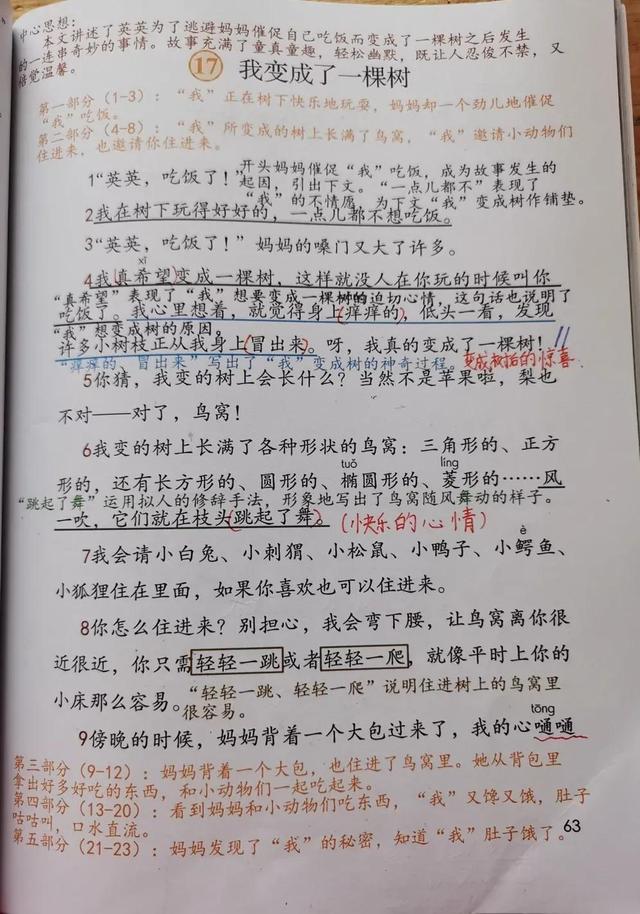 中心思想：
本文讲述了英英为了逃避妈妈催促自己吃饭而变成了一棵树之后发生
的一连串奇妙的事情。故事充满了童真童趣，轻松幽默，既让人忍俊不禁，又
倍觉温馨。
17 我变成了一棵树
第一部分（1-3）：“我”正在树下快乐地玩耍，妈妈却一个劲儿地催促
“我”吃饭。
第二部分（4-8）：“我”所变成的树上长满了鸟窝，“我”邀请小动物们
住进来，也邀请你住进来。
1“英英，吃饭了！”
开头妈妈催促“我”吃饭，成为故事发生的
起因，引出下文。“一点儿都不”表现了
“我”的不情愿，为下文“我”变成树作铺垫。
2我在树下玩得好好的，一点儿都不想吃饭。
3“英英，吃饭了！”妈妈的嗓门又大了许多。
xī
4我真希望变成一棵树，这样就没人在你玩的时候叫你
“真希望”表现了“我”想要变成一棵树的迫切心情，这句话也说明了
吃饭了。我心里想着，就觉得身上痒痒的，低头一看，发现
“我”想变成树的原因。
许多小树枝正从我身上冒出来。呀，我真的变成了一棵树！
“痒痒的、冒出来”写出了“我”变成树的神奇过程。
变成树后的惊喜
5你猜，我变的树上会长什么？当然不是苹果啦，梨也
不对——对了，鸟窝！
6我变的树上长满了各种形状的鸟窝：三角形的、正方
tuǒ líng
形的，还有长方形的、圆形的、椭圆形的、菱形的……风
“跳起了舞”运用拟人的修辞手法，形象地写出了鸟窝随风舞动的样子。
一吹，它们就在枝头跳起了舞。（快乐的心情）
è
7我会请小白兔、小刺猬、小松鼠、小鸭子、小鳄鱼、
小狐狸住在里面，如果你喜欢也可以住进来。
8你怎么住进来？别担心，我会弯下腰，让鸟窝离你很
近很近，你只需轻轻一跳或者轻轻一爬，就像平时上你的
小床那么容易。
“轻轻一跳、轻轻一爬”说明住进树上的鸟窝里
很容易。
tōng
9傍晚的时候，妈妈背着一个大包过来了，我的心嗵嗵
第三部分（9-12）：妈妈背着一个大包，也住进了鸟窝里。她从背包里
拿出好多好吃的东西，和小动物们一起吃起来。
第四部分（13-20）：看到妈妈和小动物们吃东西，“我”又馋又饿，肚子
咕咕叫，口水直流。
第五部分（21-23）：妈妈发现了“我”的秘密，知道“我”肚子饿了。
63